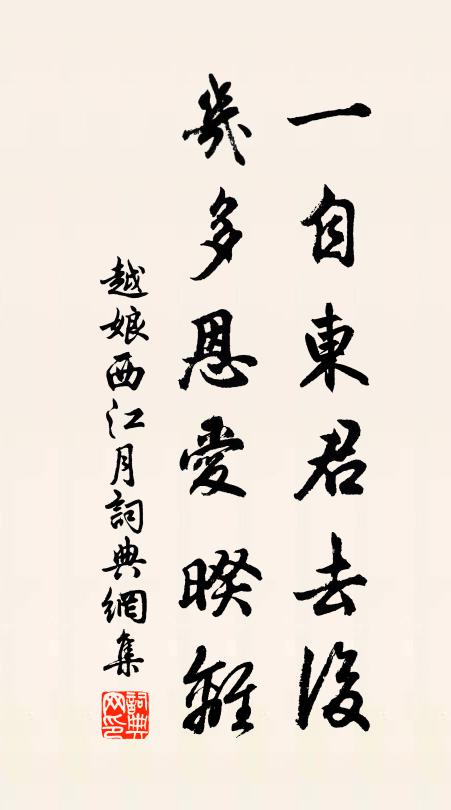 一自東君去後
幾多恩愛暌離
越娘西江月詞典網集
詞典网印